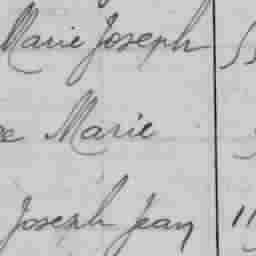 Marie Joseph
Marie
Joseph Jean 11